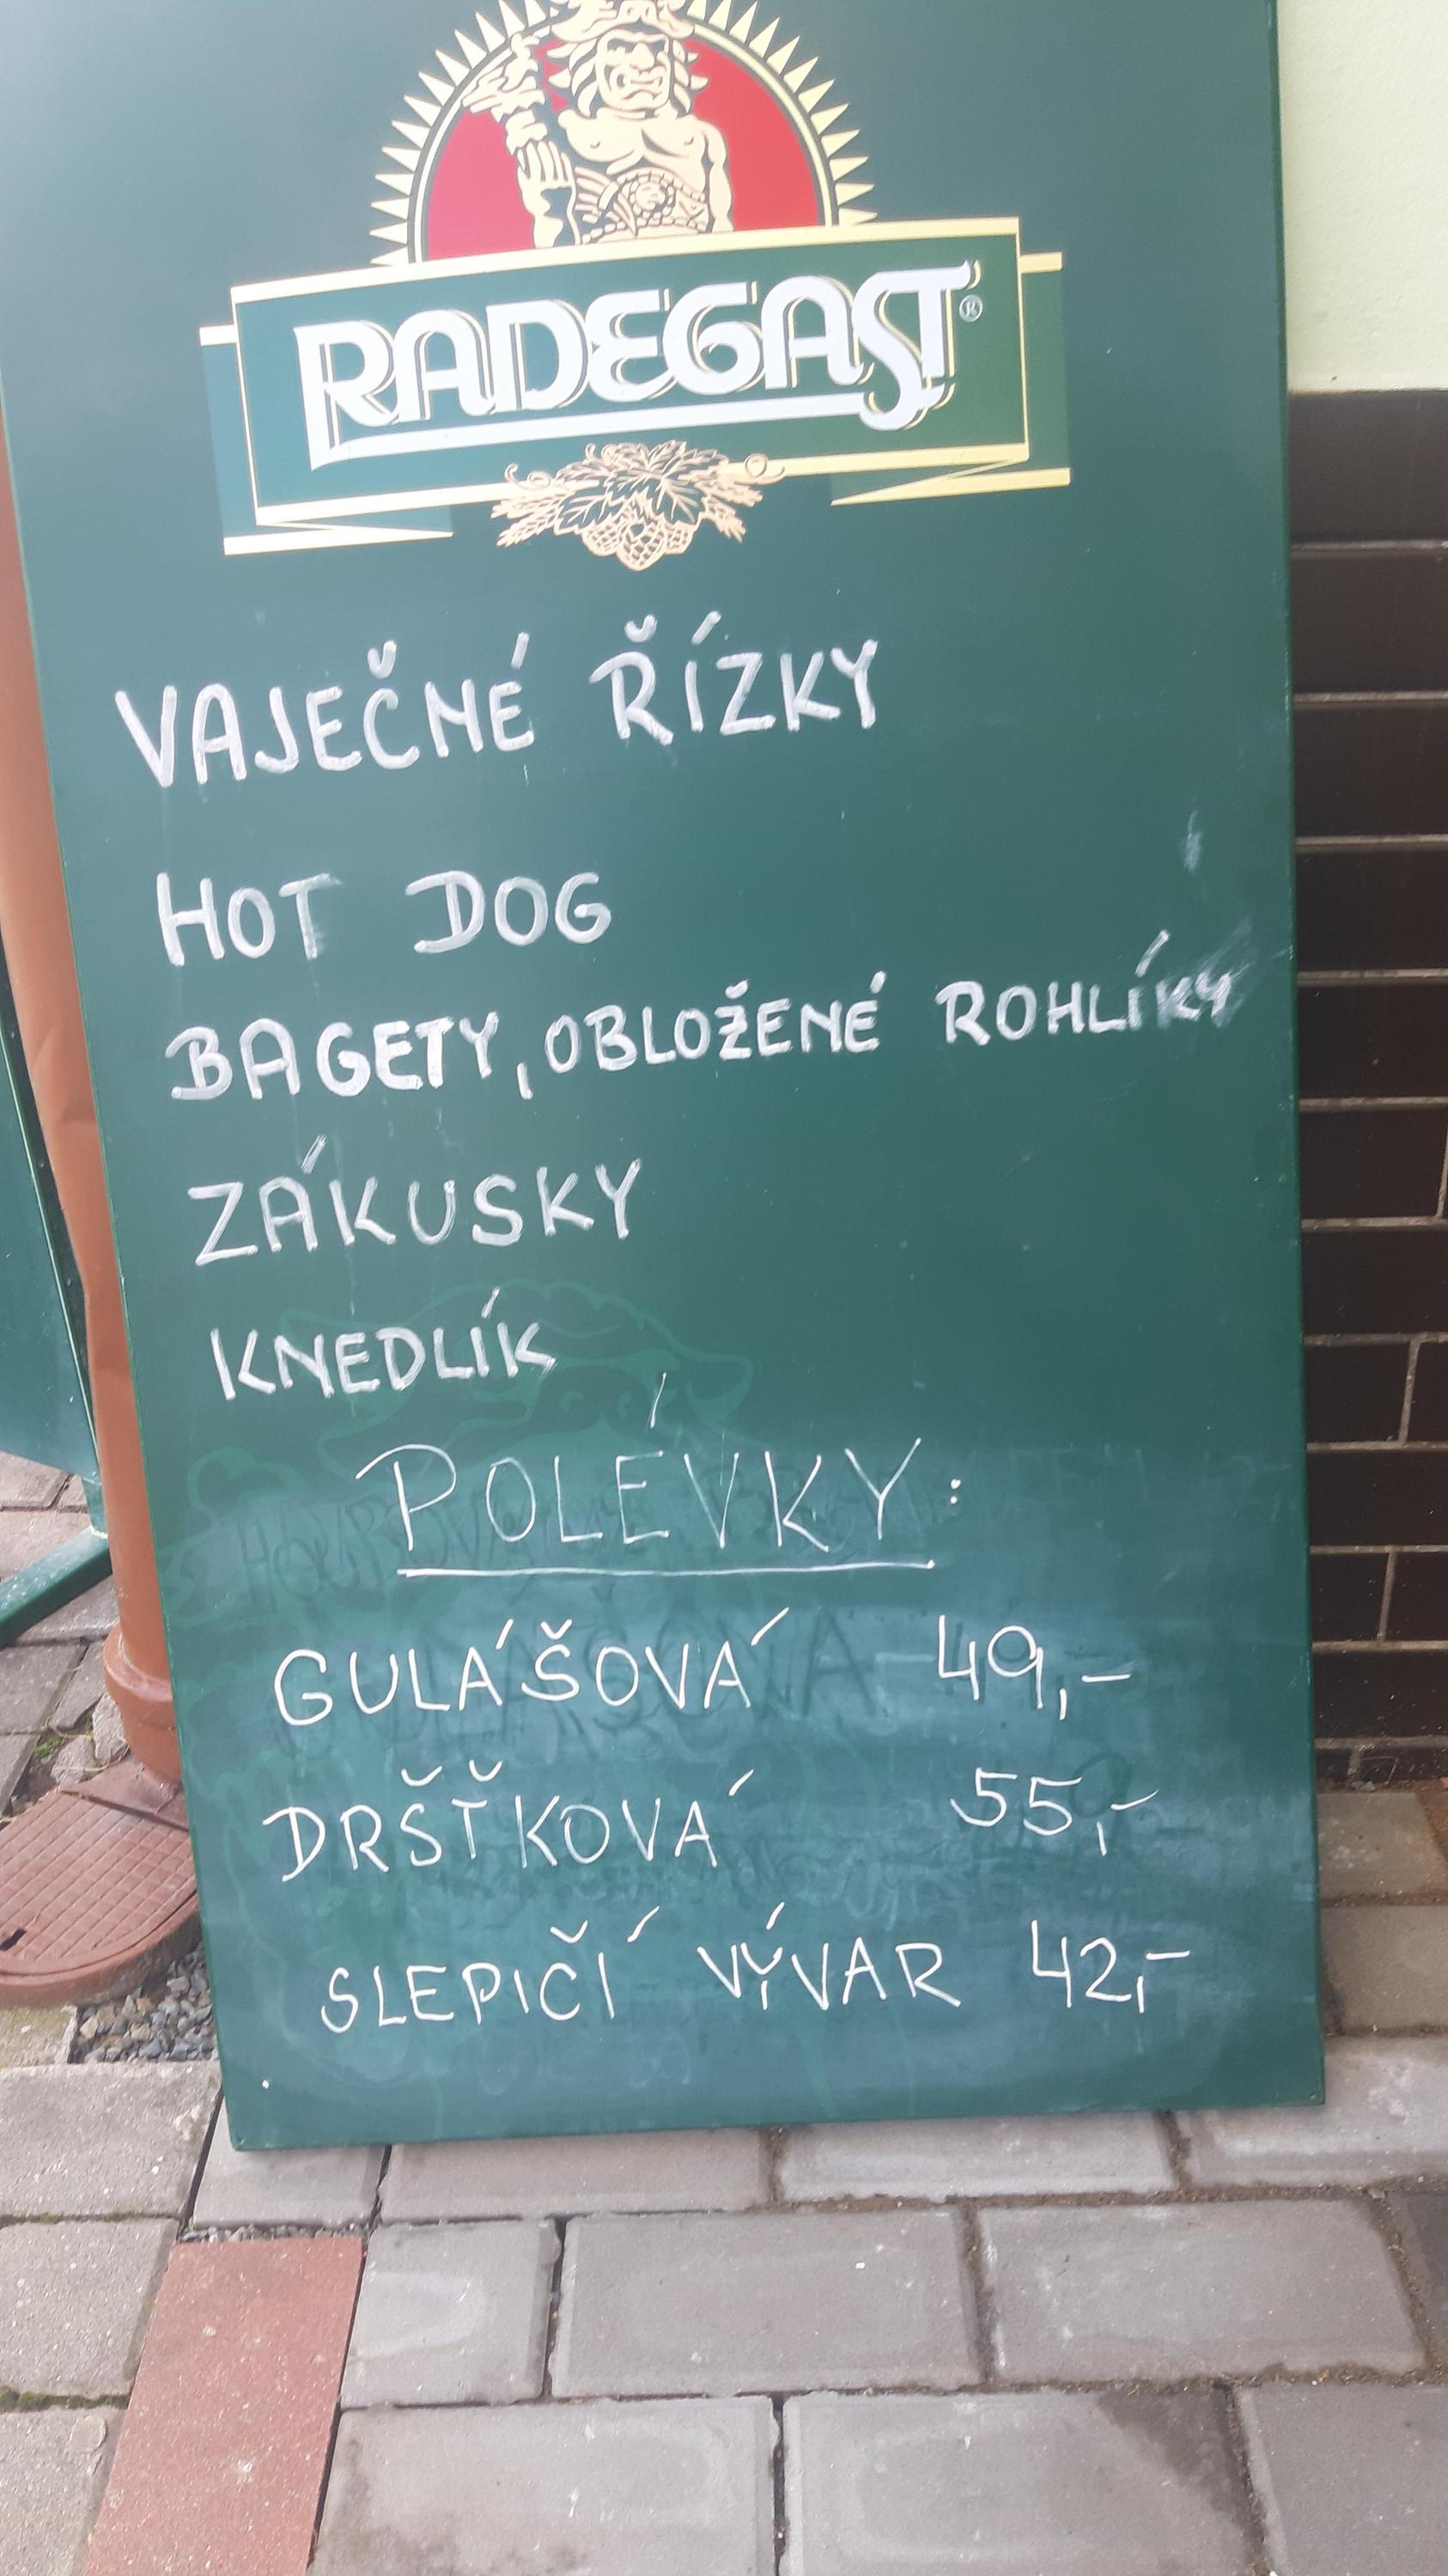 RADEGAST®
VAJEČNÉ ŘÍZKY
HOT DOG
BAGETY, OBLOŽENÉ ROHLÍKY
ZÁKUSKY
KNEDLÍK
POLÉVKY:
GULÁŠOVÁ 49,-
DRŠŤKOVÁ 55,-
SLEPIČÍ VÝVAR 42,-